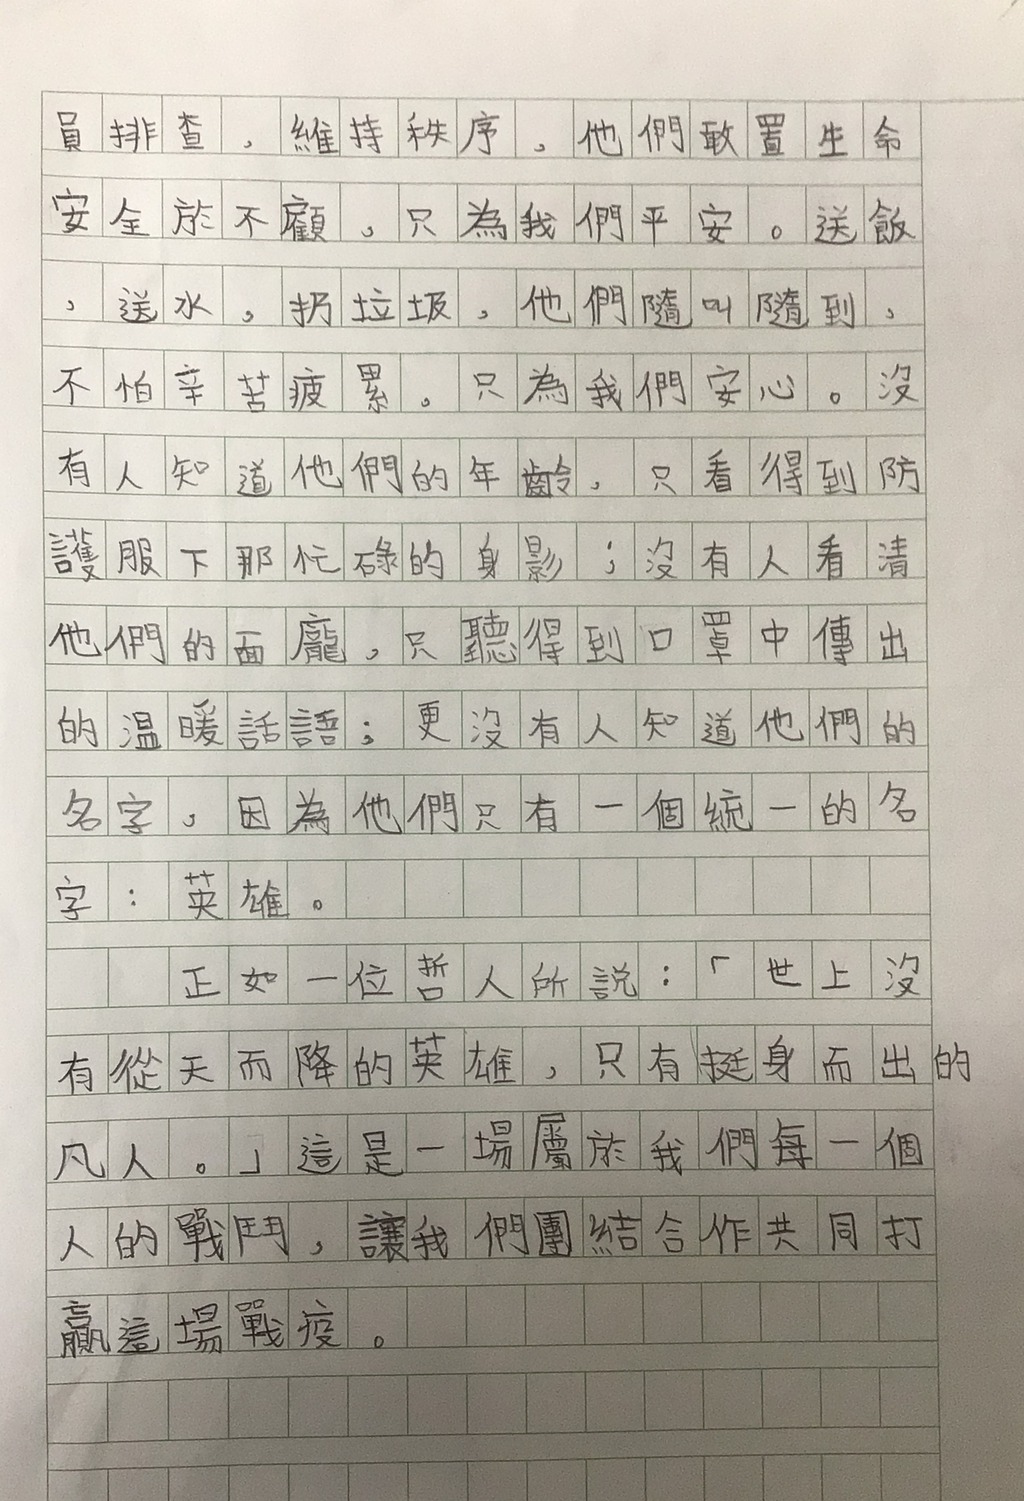 員排查,維持秩序,他們敢置生命
安全於不顧,只為我們平安。送飯
,送水,扔垃圾,他們隨叫隨到,
不怕辛苦疲累。只為我們安心。沒
有人知道他們的年齡,只看得到防
護服下那忙碌的身影;沒有人看清
他們的面龐,只聽得到口罩中傳出
的温暖話語;更沒有人知道他們的
名字,因為他們只有一個統一的名
字:英雄。
正如一位哲人所説:「世上沒
有從天而降的英雄,只有挺身而出的
凡人。」這是一場屬於我們每一個
人的戰鬥,讓我們團結合作共同打
贏這場戰疫。